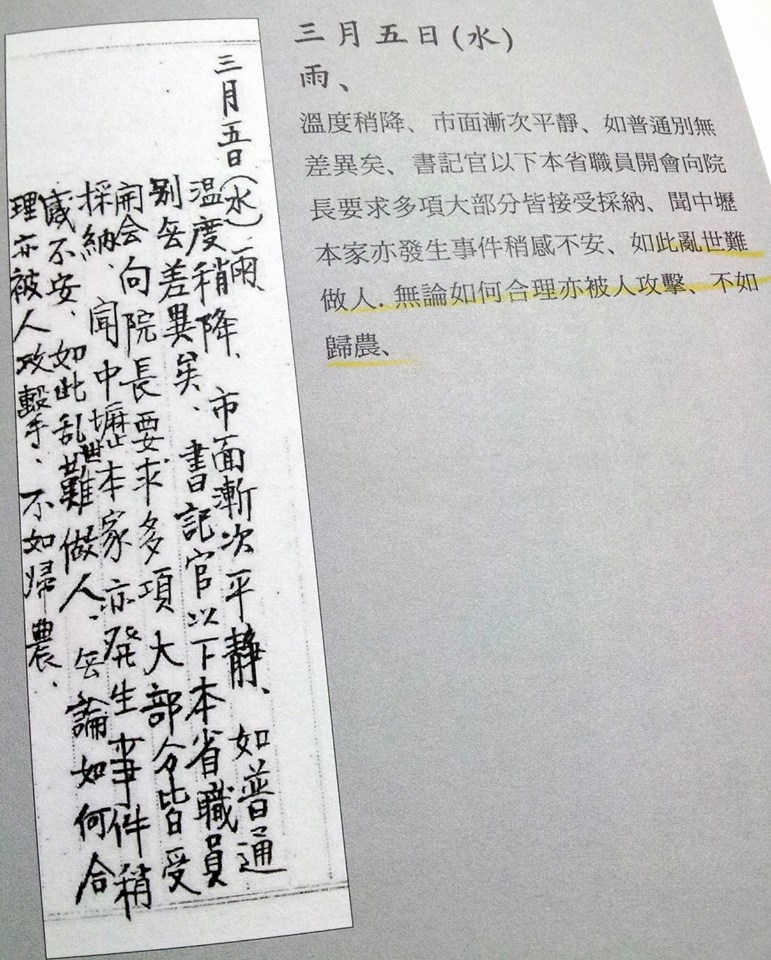 三月五日(水)
雨、
溫度稍降、市面漸次平靜、如普通別無
差異矣、書記官以下本省職員開會向院
長要求多項大部分皆接受採納、聞中壢
本家亦發生事件稍感不安、如此亂世難
做人.無論如何合理亦被人攻擊、不如
歸農、
三月五日(水)雨、
溫度稍降、市面漸次平靜、如普通
別無差異矣、書記官以下本省職員
開会向院長要求多項大部分皆受
採納、聞中壢本家亦発生事件稍
感不安、如此乱世難做人、無論如何合
理亦被人攻擊、不如帰農、